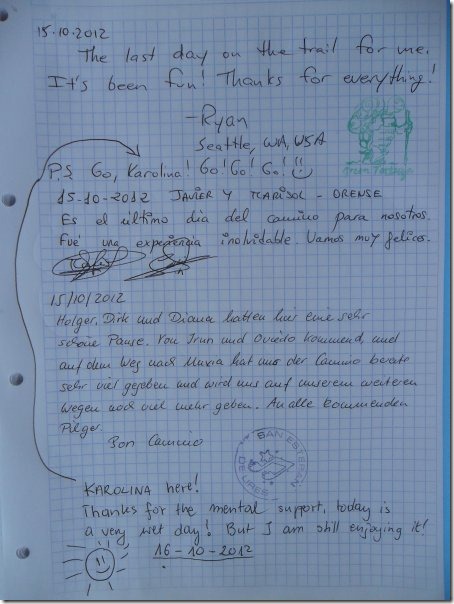 15.10.2012
The last day on the trail for me.
It's been fun! Thanks for everything!
-Ryan
Seattle, WA, USA
P.S. Go, Karolina! Go! Go! Go!
15-10-2012 JAVIER Y MARISOL - ORENSE
Es el último dia del camino para nosotros.
Fué una experiencia inolvidable. Vamos muy felices.
15/10/2012
Holger, Dirk und Diana hatten hier eine sehr
schöne Pause. Von Irun und Oviedo kommend, und
auf dem Weg nach Muxia hat uns der Camino
sehr viel gegeben und wird uns auf unserem weiteren
Wegen noch viel mehr geben. An alle kommenden
Pilger.
Bon Camino
SAN ESTEBAN
DE
KAROLINA here!
Thanks for the mental support, today is
a very wet day! But I am still enjoying it!
16-10-2012